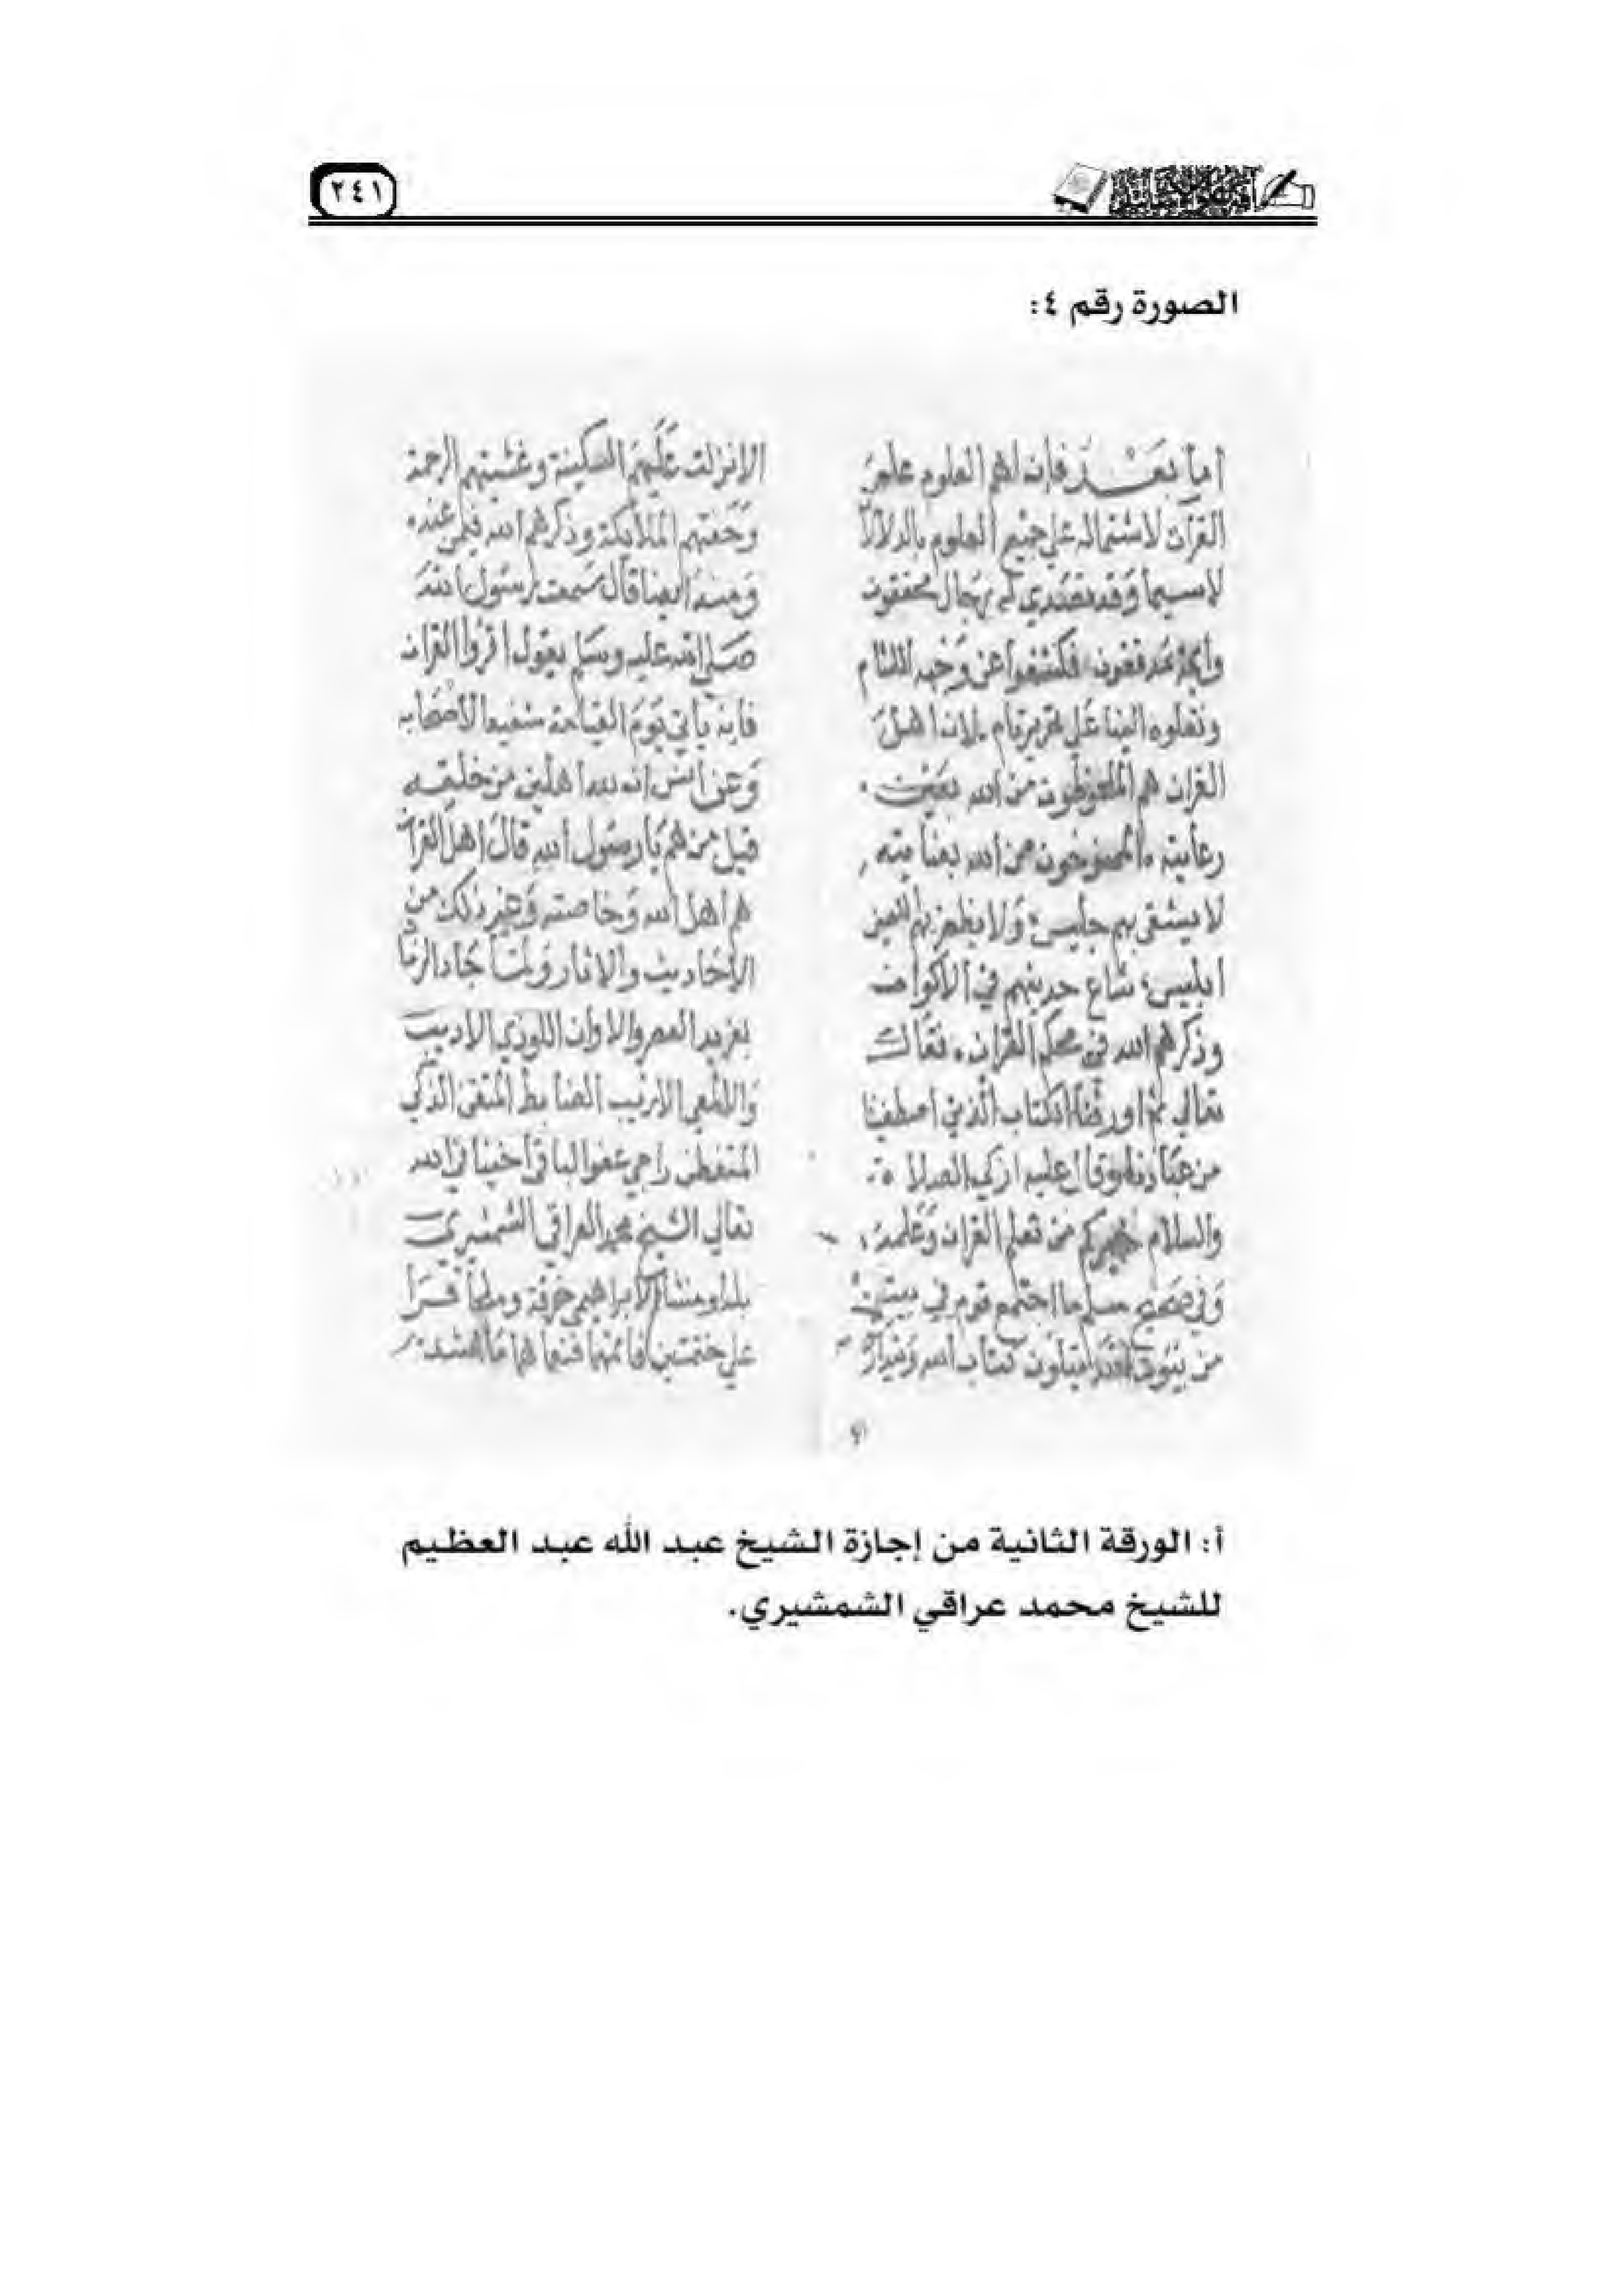 ٢٤١
الصورة رقم ٤:
أما بعد فإن أهم العلوم علم
القرآن لاشتماله على جميع العلوم بالدلالا
لاسيما وقد تصدى له رجال محققون
وأيمة مدققون فكشفوا عن وجهه اللثام
ونقلوه الينا على تحرير تام لان اهل
القران هم الملحوظون من الله بعين
رعايته من الله بعنايته
لا يشقى بهم جليس ولا يظفر بهم
ابليس شاع حديثهم في الاكوان
وذكرهم الله في محكم القران فقال
تعالى ثم اورثنا الكتاب الذين اصطفينا
من عبادنا وقال عليه ازكى الصلاة
والسلام خيركم من تعلم القران وعلمه
وفي صحيح مسلم ما اجتمع قوم في بيت
من بيوت الله يتلون كتاب الله
الا نزلت عليهم السكينة وغشيتهم الرحمة
وحفتهم الملائكة وذكرهم الله فيمن عنده
ايضا قال سمعت رسول الله
صلى الله عليه وسلم يقول اقرؤا القران
فانه يأتي يوم القيامة شفيعا لأصحابه
وعن انس ان لله اهلين من خليقته
قيل من هم يا رسول الله قال اهل القرآن
هم اهل الله وخاصته وغير ذلك من
الأحاديث والاثار ولما جاد الزما
بفريد العصر والاوان اللوذعي الاديب
والالمعي الاريب الضابط المتقن الذكي
راجي عفو الباقي أخينا في الله
تعالى الشيخ محمد العراقي الشمشيري
بلدا ومنشا الابراهيمي خرقة قرا
علي ختمتين
أ: الورقة الثانية من إجازة الشيخ عبد الله عبد العظيم
للشيخ محمد عراقي الشمشيري.